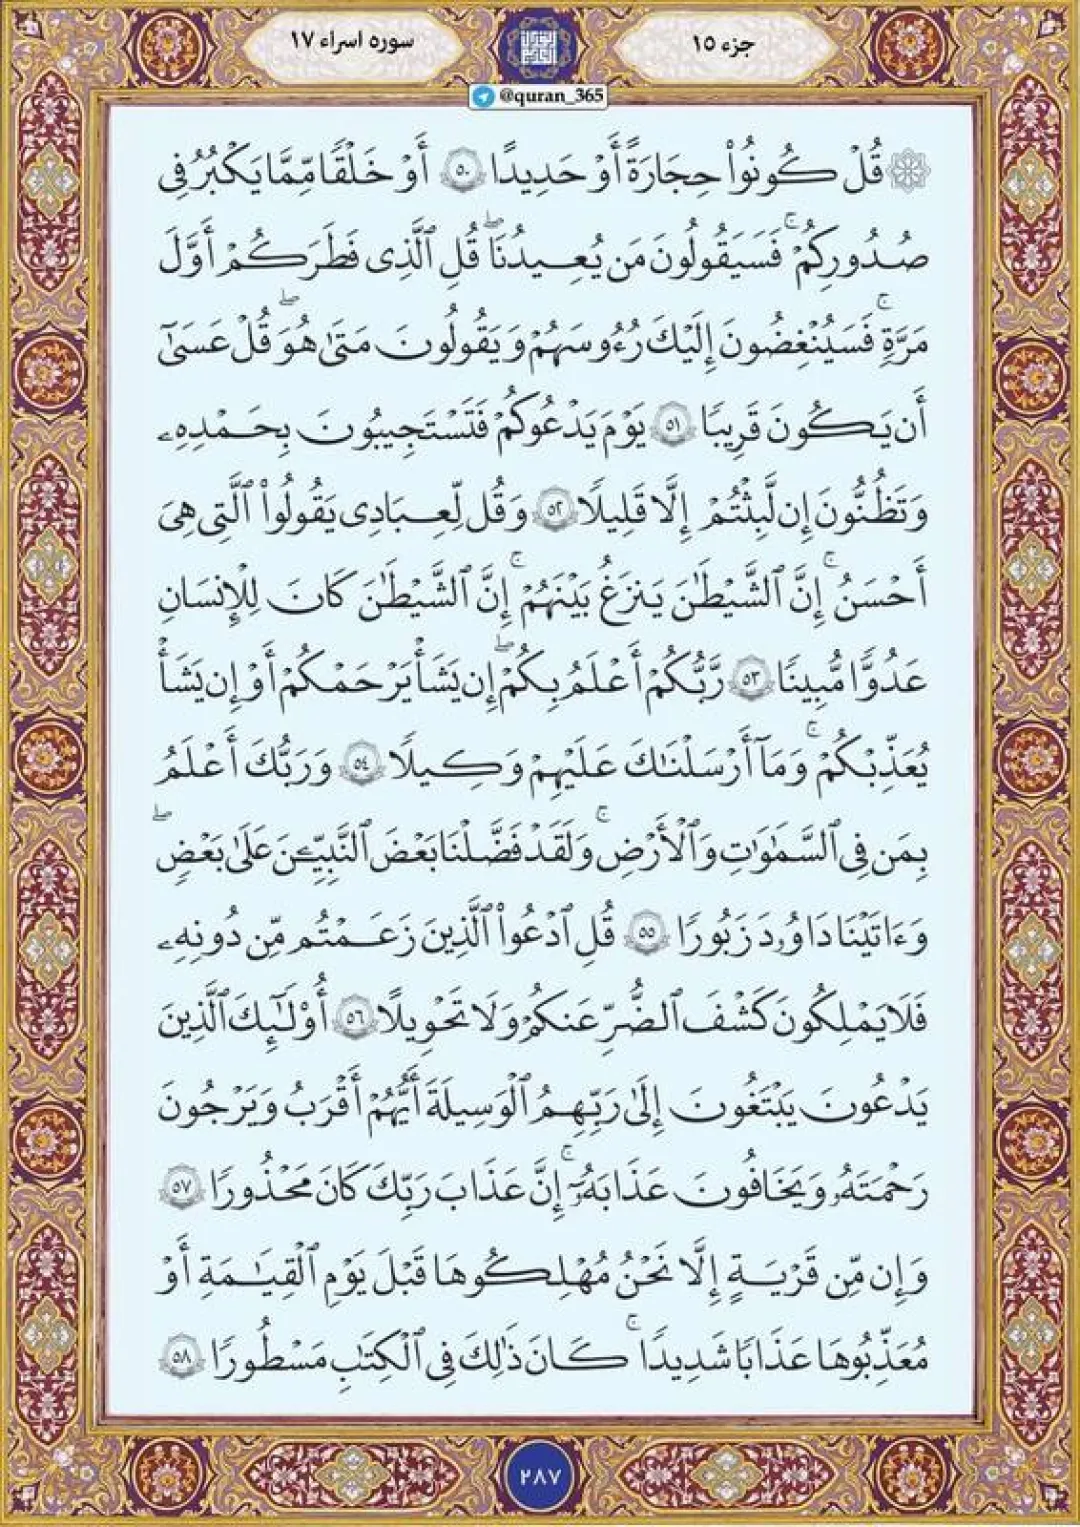 جزء ۱۵
سوره اسراء ۱۷
@quran_365
۞ قُلْ كُونُوا۟ حِجَارَةً أَوْ حَدِيدًا ۝٥٠ أَوْ خَلْقًا مِّمَّا يَكْبُرُ فِى
صُدُورِكُمْ ۚ فَسَيَقُولُونَ مَن يُعِيدُنَا ۖ قُلِ ٱلَّذِى فَطَرَكُمْ أَوَّلَ
مَرَّةٍ ۚ فَسَيُنْغِضُونَ إِلَيْكَ رُءُوسَهُمْ وَيَقُولُونَ مَتَىٰ هُوَ ۖ قُلْ عَسَىٰٓ
أَن يَكُونَ قَرِيبًا ۝٥١ يَوْمَ يَدْعُوكُمْ فَتَسْتَجِيبُونَ بِحَمْدِهِۦ
وَتَظُنُّونَ إِن لَّبِثْتُمْ إِلَّا قَلِيلًا ۝٥٢ وَقُل لِّعِبَادِى يَقُولُوا۟ ٱلَّتِى هِىَ
أَحْسَنُ ۚ إِنَّ ٱلشَّيْطَٰنَ يَنزَغُ بَيْنَهُمْ ۚ إِنَّ ٱلشَّيْطَٰنَ كَانَ لِلْإِنسَانِ
عَدُوًّا مُّبِينًا ۝٥٣ رَّبُّكُمْ أَعْلَمُ بِكُمْ ۖ إِن يَشَأْ يَرْحَمْكُمْ أَوْ إِن يَشَأْ
يُعَذِّبْكُمْ ۚ وَمَآ أَرْسَلْنَٰكَ عَلَيْهِمْ وَكِيلًا ۝٥٤ وَرَبُّكَ أَعْلَمُ
بِمَن فِى ٱلسَّمَٰوَٰتِ وَٱلْأَرْضِ ۚ وَلَقَدْ فَضَّلْنَا بَعْضَ ٱلنَّبِيِّـۧنَ عَلَىٰ بَعْضٍ ۖ
وَءَاتَيْنَا دَاوُۥدَ زَبُورًا ۝٥٥ قُلِ ٱدْعُوا۟ ٱلَّذِينَ زَعَمْتُم مِّن دُونِهِۦ
فَلَا يَمْلِكُونَ كَشْفَ ٱلضُّرِّ عَنكُمْ وَلَا تَحْوِيلًا ۝٥٦ أُو۟لَٰٓئِكَ ٱلَّذِينَ
يَدْعُونَ يَبْتَغُونَ إِلَىٰ رَبِّهِمُ ٱلْوَسِيلَةَ أَيُّهُمْ أَقْرَبُ وَيَرْجُونَ
رَحْمَتَهُۥ وَيَخَافُونَ عَذَابَهُۥٓ ۚ إِنَّ عَذَابَ رَبِّكَ كَانَ مَحْذُورًا ۝٥٧
وَإِن مِّن قَرْيَةٍ إِلَّا نَحْنُ مُهْلِكُوهَا قَبْلَ يَوْمِ ٱلْقِيَٰمَةِ أَوْ
مُعَذِّبُوهَا عَذَابًا شَدِيدًا ۚ كَانَ ذَٰلِكَ فِى ٱلْكِتَٰبِ مَسْطُورًا ۝٥٨
۲۸۷